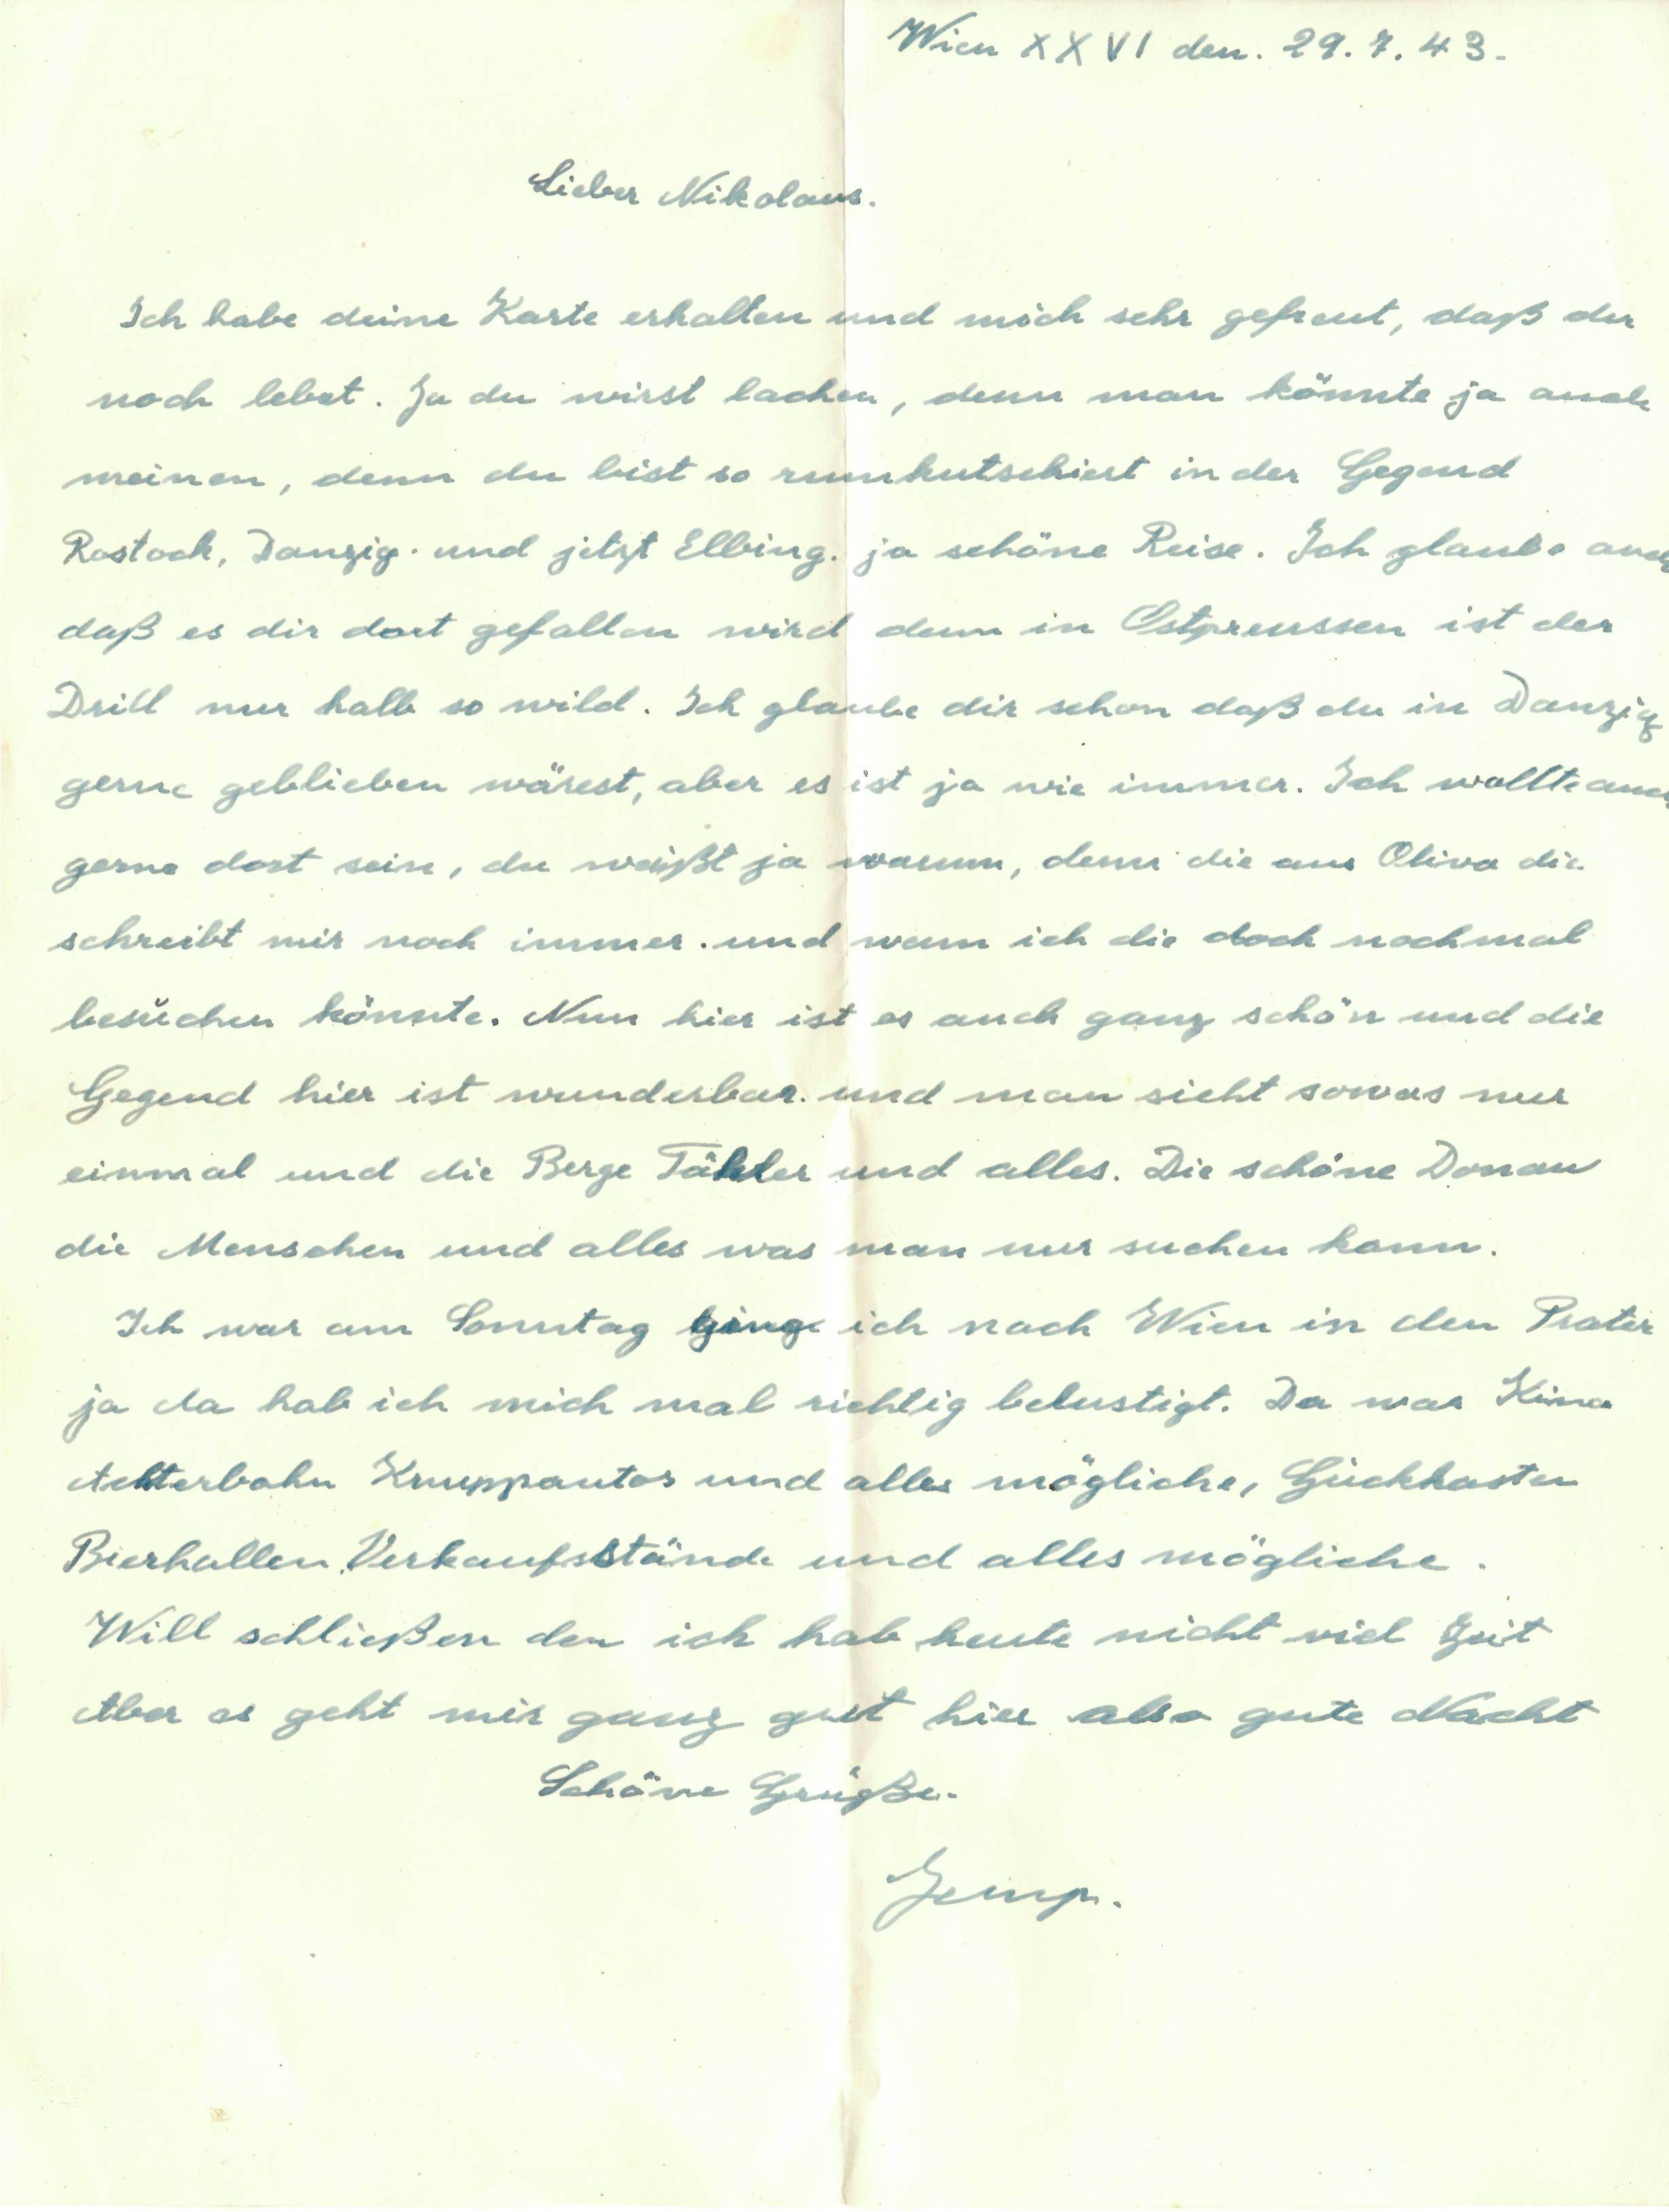 Wien XXVI den. 29.7.43.
Lieber Nikolaus.
Ich habe deine Karte erhalten und mich sehr gefreut, daß du
noch lebst. Ja du wirst lachen, denn man könnte ja auch
meinen, denn du bist so rumkutschiert in der Gegend
Rostock, Danzig. und jetzt Elbing. ja schöne Reise. Ich glaube auch
daß es dir dort gefallen wird denn in Ostpreussen ist der
Drill nur halb so wild. Ich glaube dir schon daß du in Danzig
gerne geblieben wärest, aber es ist ja wie immer. Ich wollte auch
gerne dort sein, du weißt ja warum, denn die aus Oliva die
schreibt mir noch immer. und wenn ich die doch nochmal
besuchen könnte. Nun hier ist es auch ganz schön und die
Gegend hier ist wunderbar. und man sieht sowas nur
einmal und die Berge Tähler und alles. Die schöne Donau
die Menschen und alles was man nur suchen kann.
Ich war am Sonntag ging ich nach Wien in den Prater
ja da hab ich mich mal richtig belustigt. Da war Kino
Achterbahn Knuppautos und alles mögliche, Guckkasten
Bierhallen, Verkaufsstände und alles mögliche.
Will schließen den ich hab heute nicht viel Zeit
Aber es geht mir ganz gut hier also gute Nacht
Schöne Grüße.
Jemp.